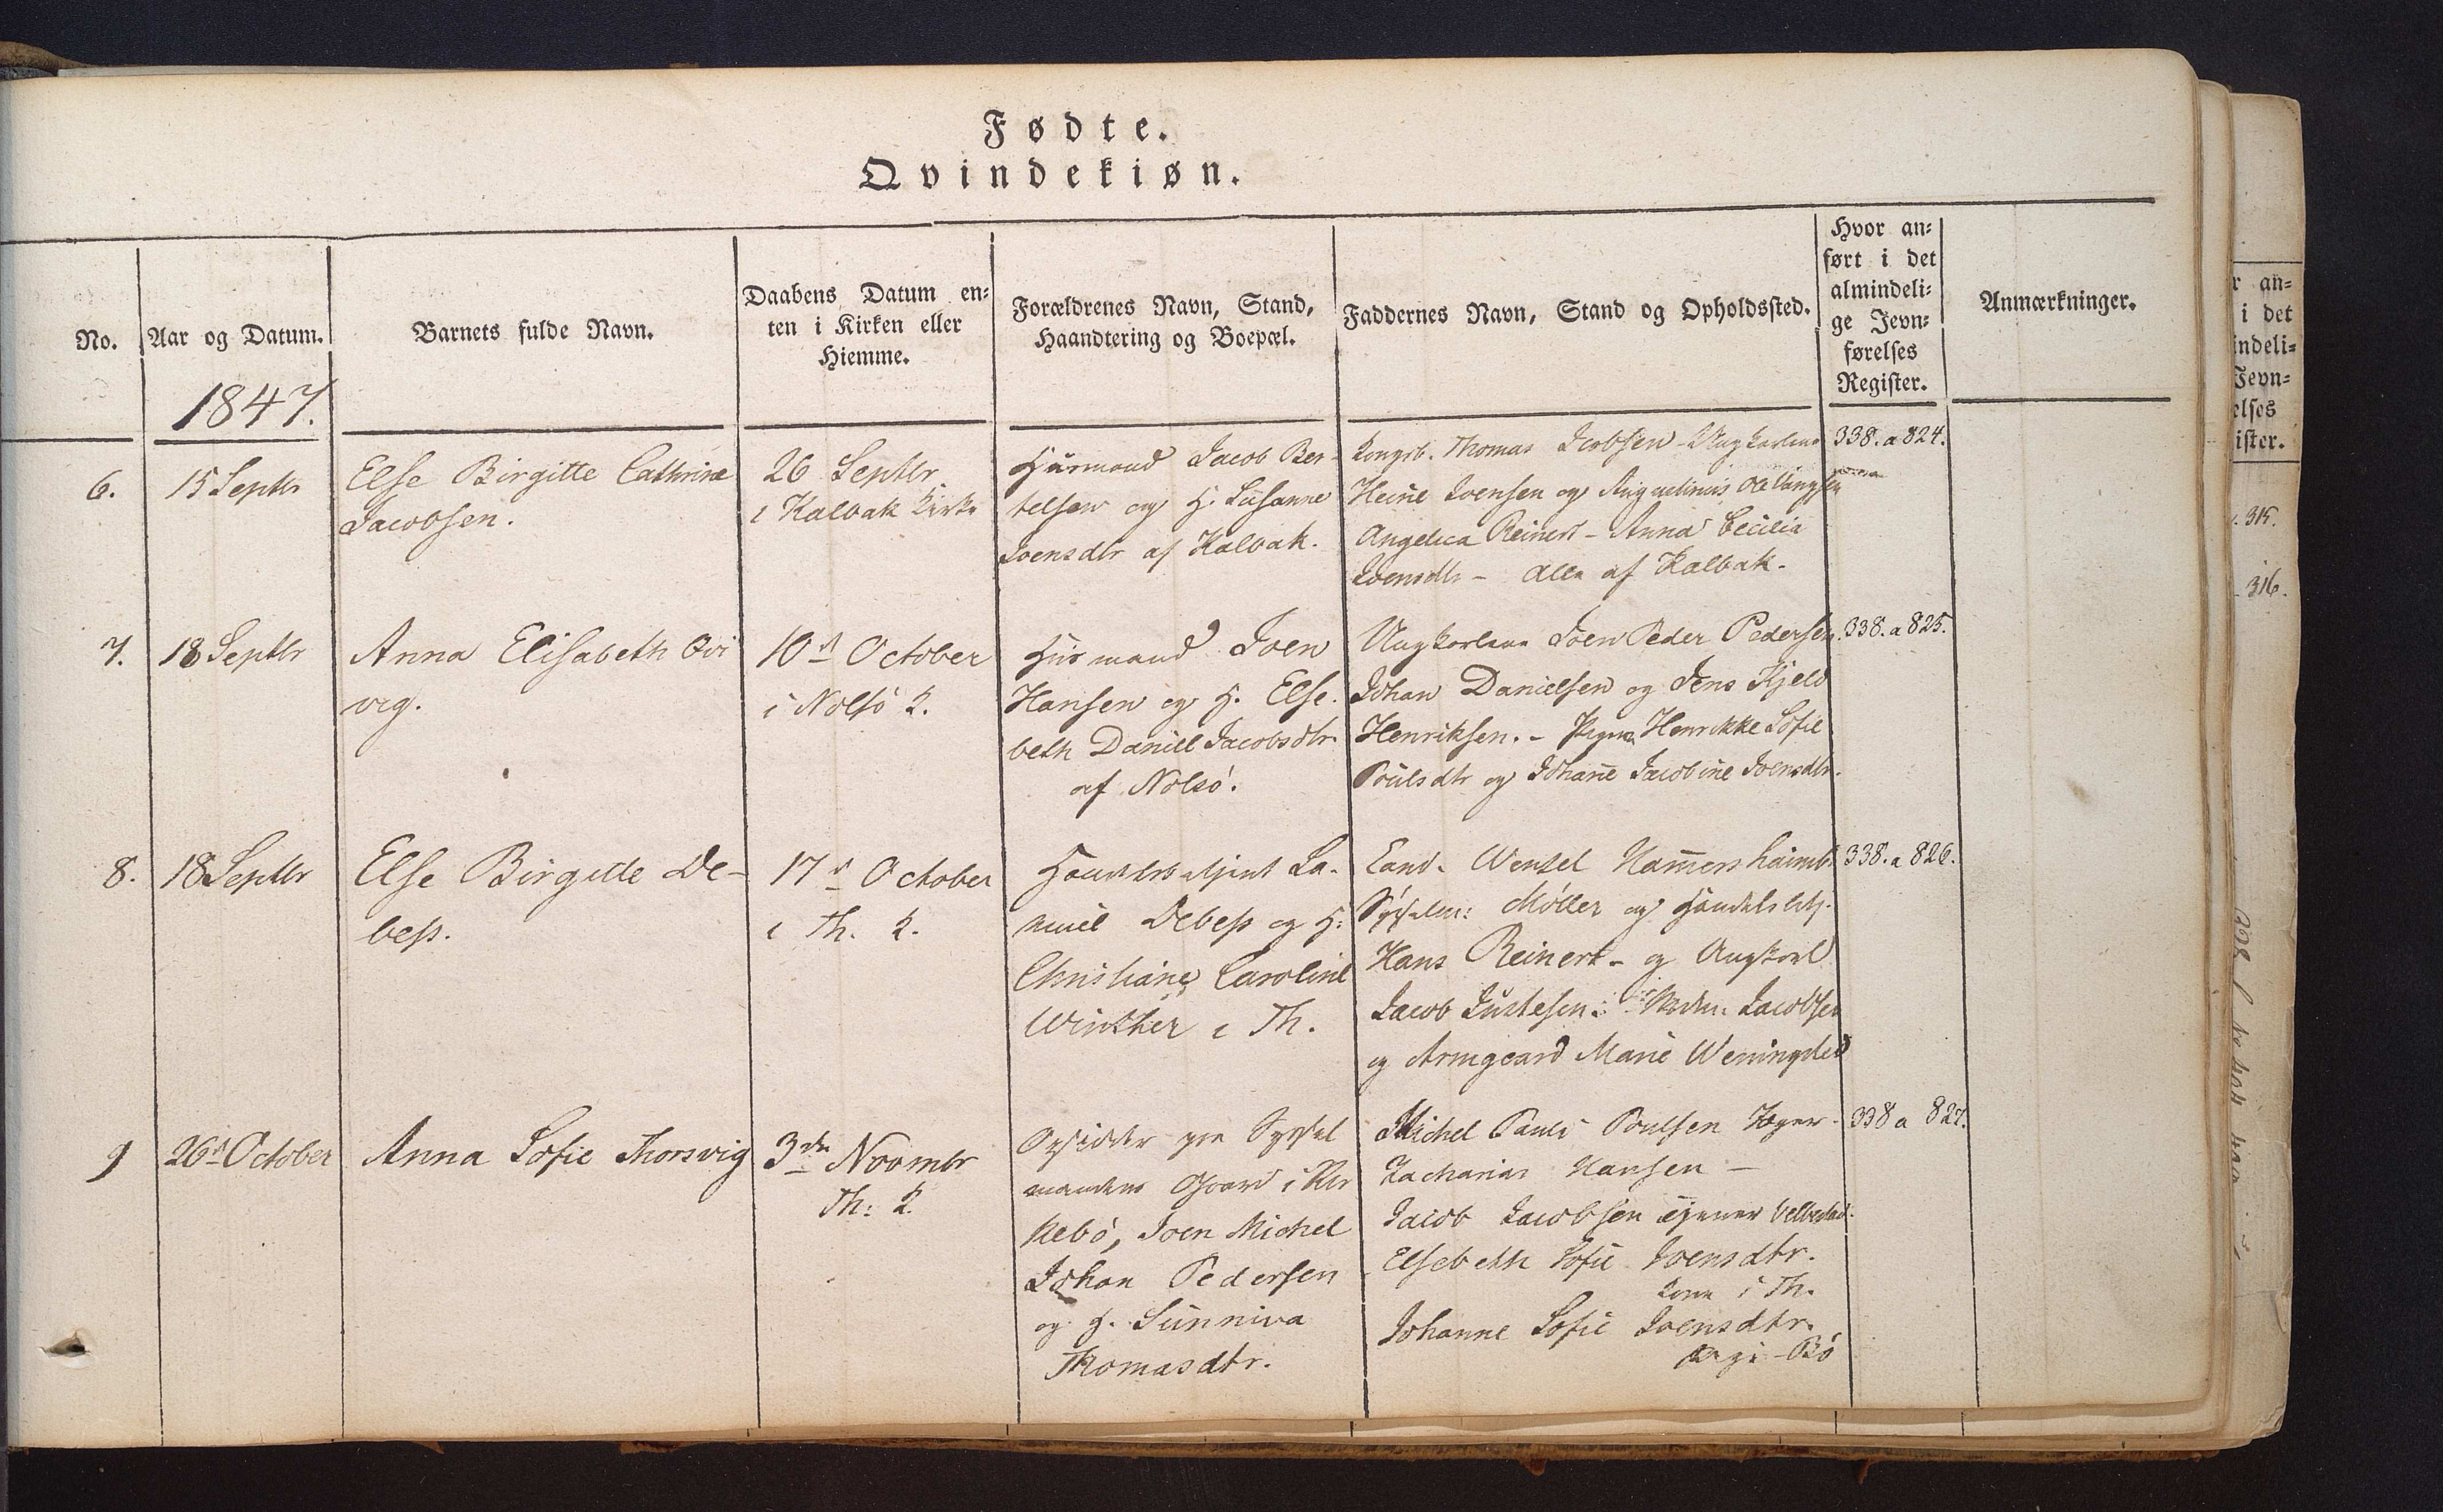 Fødte.
Qvindekiøn.
No.
Aar og Datum.
Barnets fulde Navn.
Daabens Datum en=
ten i Kirken eller
Hiemme.
Forældrenes Navn, Stand,
Haandtering og Boepæl.
Faddernes Navn, Stand og Opholdssted.
Hvor an=
ført i det
almindeli=
ge Jevn=
førelses
Register.
Anmærkninger.
1847.
6.
15 Septbr
Else Birgitte Cathrine
Jacobsen.
26 Septbr
i Kalbak Kirke
Huusmand Jacob Ber-
telsen og H. Susanne
Joensdtr af Kalbak.
Kongsb. Thomas Jcobsen - Ungkarlene
Heine Joensen og
Angelica Reinert - Anna Cecilia
Joensdtr - Alle af Kalbak.
338. a 824.
7.
18 Septbr
Anna Elisabeth Qvi
vig.
10de October
i Nolsö K.
Huusmand Joen
Hansen og H. Else-
beth Daniel Jacobsdtr
af Nolsö.
Ungkarlene Joen Peder Pedersen.
Johan Danielsen og Jens Kjeld
Henriksen. - Pigerne Henrikke Sofie
Poulsdtr og Johanne Jacobine Joensdtr.
338. a 825.
8.
18 Septbr
Else Birgitte De-
bess.
17de October
i Th. K.
Handelsbetjent Sa-
muel Debess og H.
Christiane Caroline
Winther i Th.
Cand. Wenzel Hammershaimb
Sysselm: Müller og Handelsbetj.
Hans Reinert - og Ungkarl
Jacob Justesen: Jacobsen
og Armgaard Marie Weningsted
338. a 826.
9
26de October
Anna Sofie Thorsvig
3die Novembr
Th: K.
Opsidder paa Syssel
mandens Gaard i Kir
kebö, Joen Michel
Johan Pedersen
og H. Sunniva
Thomasdtr.
Michel Pauli Poulsen
Zacharias Hansen -
Jacob Jacobsen Velbestad.
Elsebeth Sofie Joensdtr.
Kone i Th.
Johanne Sofie Joensdtr.
338 a 827.
r an=
i det
indeli=
Jevn=
elses
ister.
315.
316.